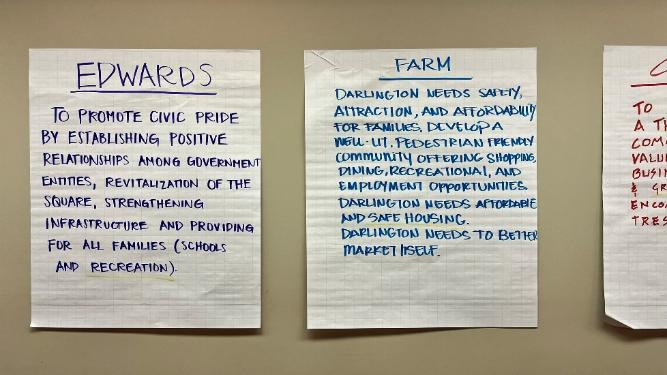 EDWARDS
TO PROMOTE CIVIC PRIDE
BY ESTABLISHING POSITIVE
RELATIONSHIPS AMONG GOVERNMENT
ENTITIES, REVITALIZATION OF THE
SQUARE, STRENGTHENING
INFRASTRUCTURE AND PROVIDING
FOR ALL FAMILIES (SCHOOLS
AND RECREATION).
FARM
DARLINGTON NEEDS SAFETY,
ATTRACTION, AND AFFORDABILITY
FOR FAMILIES, DEVELOP A
WELL-LIT, PEDESTRIAN FRIENDLY
COMMUNITY OFFERING SHOPPING,
DINING, RECREATIONAL, AND
EMPLOYMENT OPPORTUNITIES.
DARLINGTON NEEDS AFFORDABLE
AND SAFE HOUSING.
DARLINGTON NEEDS TO BETTER
MARKET ITSELF.
TO
A TH
COM
VALU
BUSI
& GR
ENCO
TRES